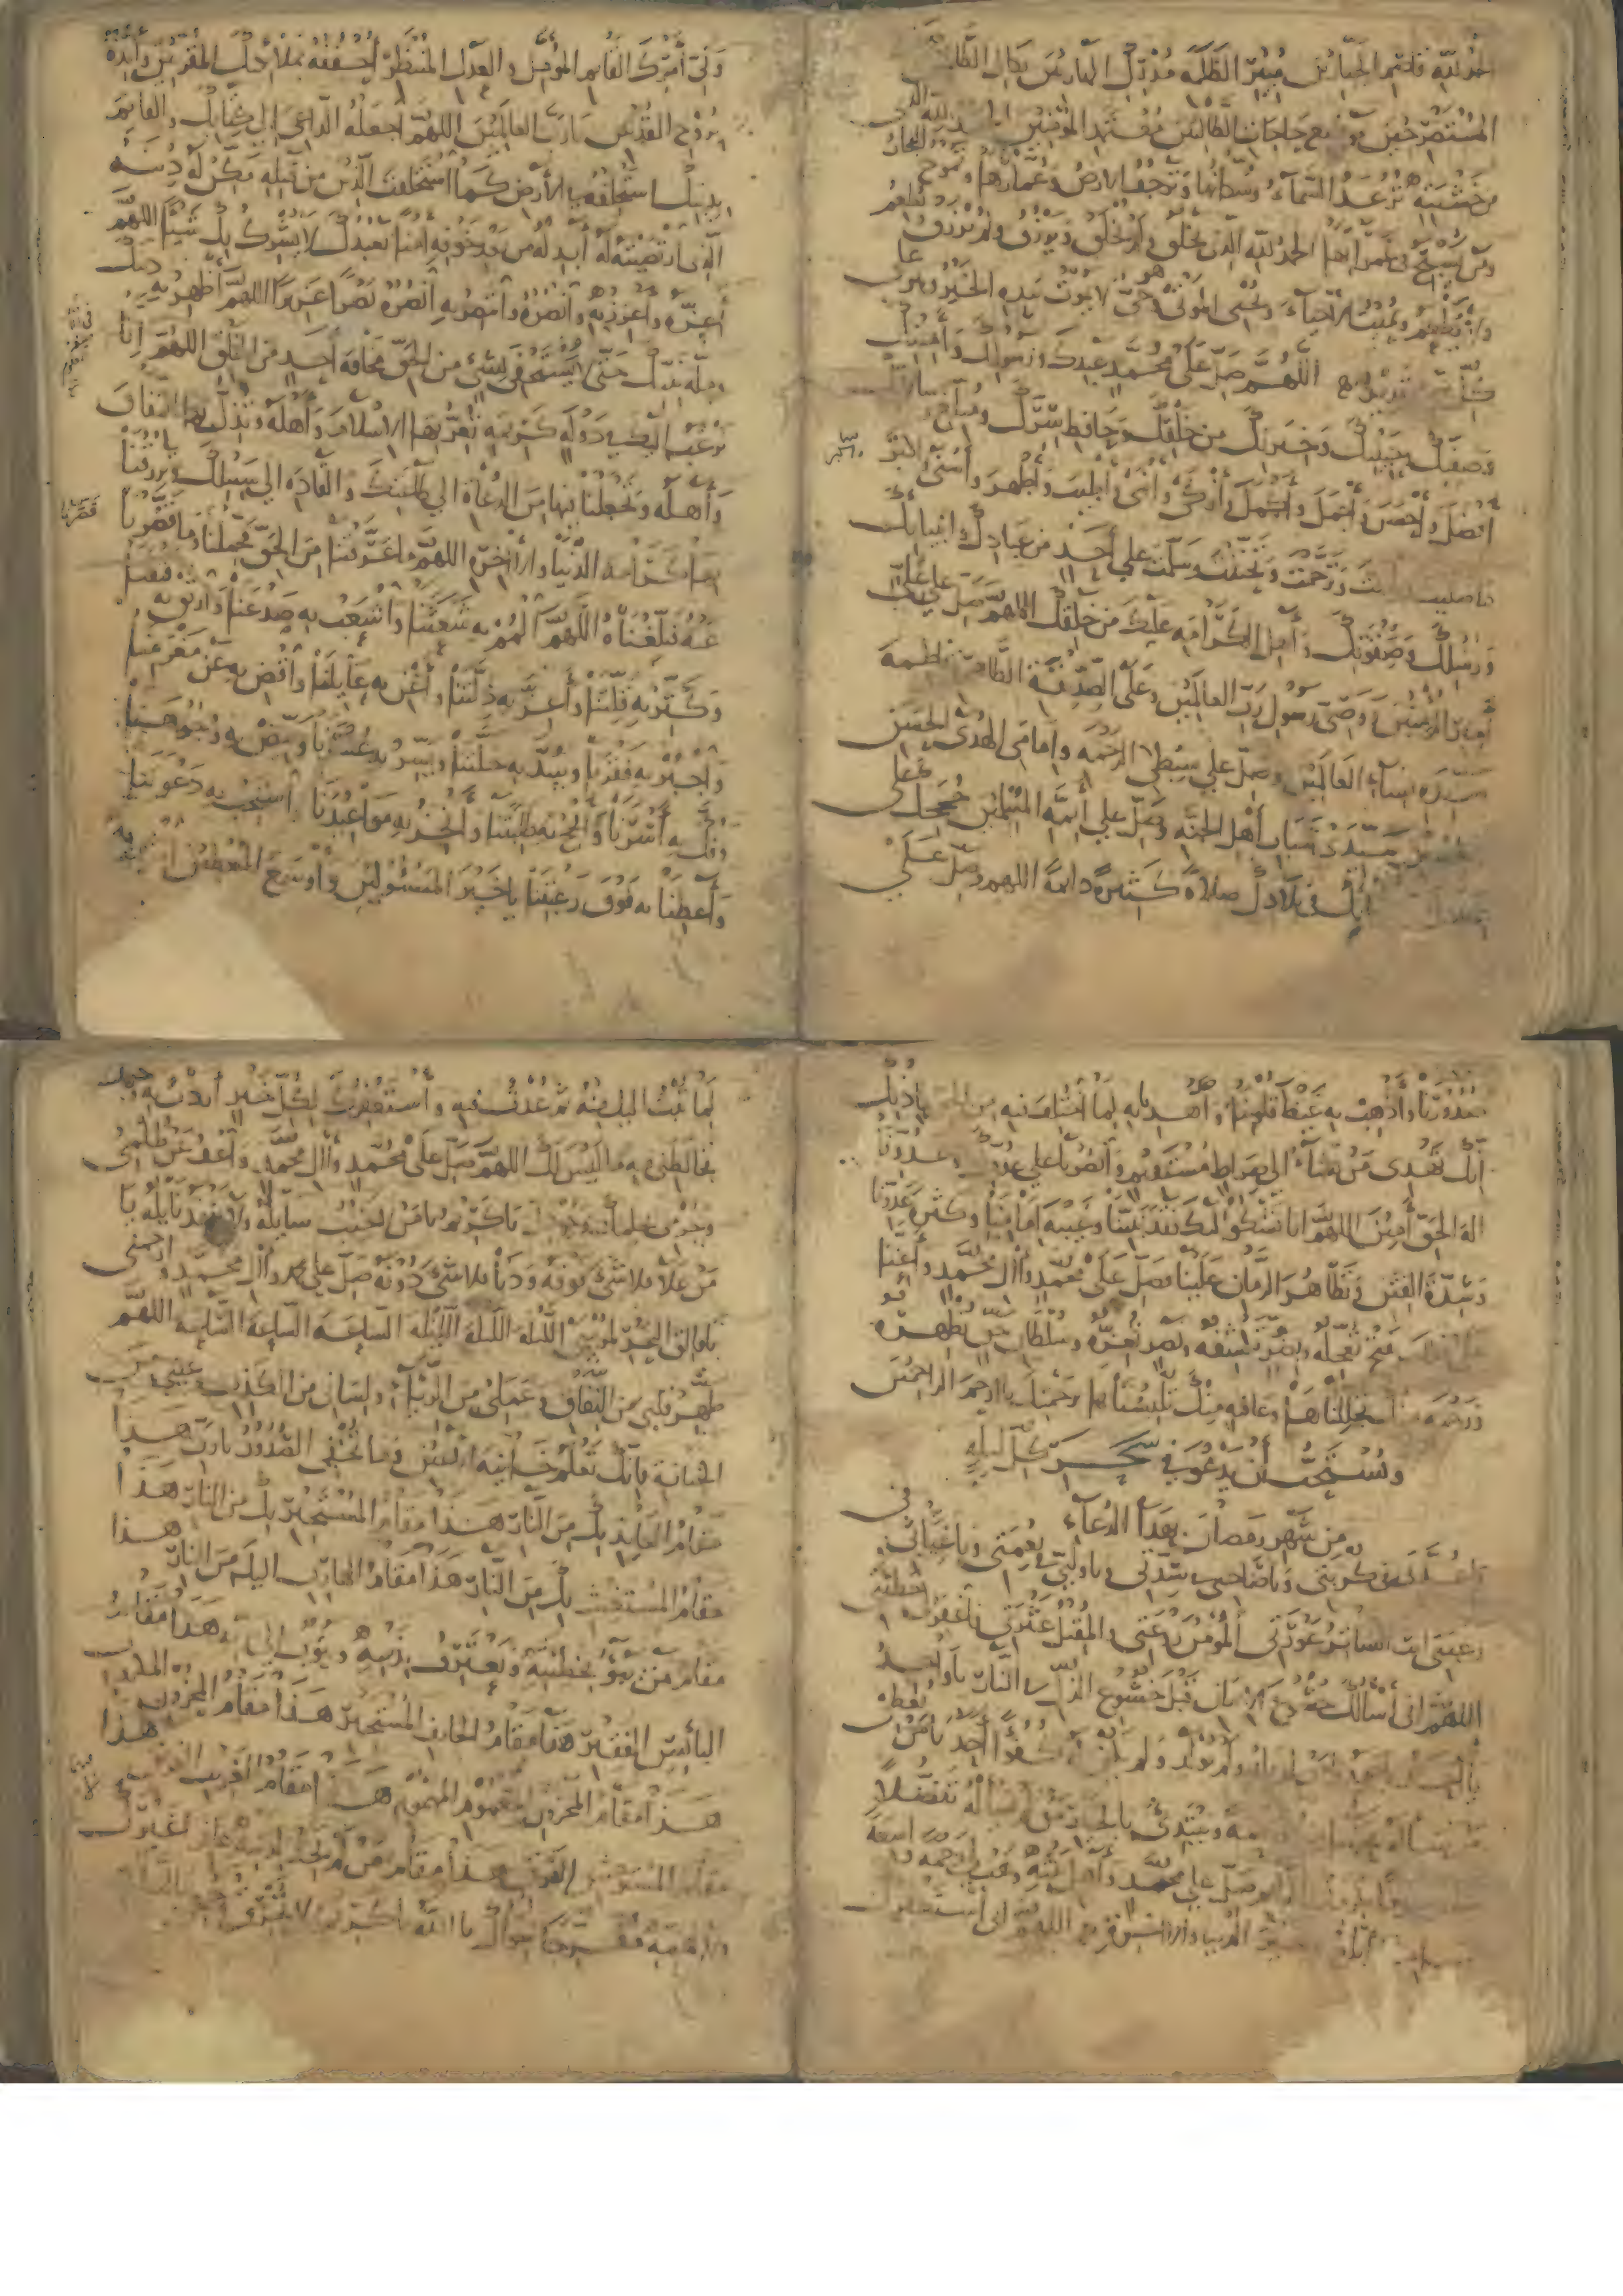 الحمد لله قاصم الجبارين مبير الظلمة مدرك الهاربين نكال الظالمين
المستصرخين موضع حاجات الطالبين معتمد المؤمنين الحمد لله الذي
من خشيته ترعد السماء وسكانها وترجف الارض وعمارها وتموج البحار
ومن يسبح في غمراتها الحمد لله الذي يخلق ولم يخلق ويرزق ولم يرزق ويطعم
ولا يطعم ويميت الاحياء ويحيي الموتى وهو حي لا يموت بيده الخير وهو على
كل شيء قدير اللهم صل على محمد عبدك ورسولك وأمينك
وصفيك وحبيبك وخيرتك من خلقك وحافظ سرك ومبلغ رسالاتك
أفضل وأحسن وأجمل وأكمل وأزكى وأنمى وأطيب وأطهر وأسنى
ما صليت وترحمت وتحننت وسلمت على أحد من عبادك وأنبيائك
ورسلك وصفوتك وأهل الكرامة عليك من خلقك اللهم صل على علي
أمير المؤمنين ووصي رسول رب العالمين وعلى الصديقة الطاهرة فاطمة
سيدة نساء العالمين وصل على سبطي الرحمة وإمامي الهدى الحسن
والحسين سيدي شباب أهل الجنة وصل على أئمة المسلمين حججك على
في بلادك صلاة كثيرة دائمة اللهم وصل على
ولي أمرك القائم المؤمل والعدل المنتظر احففه بملائكتك المقربين وأيده
بروح القدس يا رب العالمين اللهم اجعله الداعي إلى كتابك والقائم
بدينك استخلفه في الأرض كما استخلفت الذين من قبله مكن له دينه
الذي ارتضيته له أبدله من بعد خوفه أمنا يعبدك لا يشرك بك شيئا اللهم
أعزه وأعزز به وانصره وانتصر به انصره نصرا عزيزا اللهم أظهر به دينك
وملة نبيك حتى لا يستخفي بشيء من الحق مخافة أحد من الخلق اللهم إنا
نرغب إليك في دولة كريمة تعز بها الإسلام وأهله وتذل بها النفاق
وأهله وتجعلنا فيها من الدعاة إلى طاعتك والقادة إلى سبيلك وترزقنا
بها كرامة الدنيا والآخرة اللهم ما عرفتنا من الحق فحملناه وما قصرنا
قصرنا
عنه فبلغناه اللهم المم به شعثنا واشعب به صدعنا وارتق به فتقنا
وكثر به قلتنا وأعز به ذلتنا وأغن به عايلنا واقض به عن مغرمنا
واجبر به فقرنا وسد به خلتنا ويسر به عسرنا وبيض به وجوهنا
وفك به أسرنا وأنجح به طلبتنا وأنجز به مواعيدنا واستجب به دعوتنا
وأعطنا به فوق رغبتنا يا خير المسئولين وأوسع المعطين اشف به
صدورنا وأذهب به غيظ قلوبنا واهدنا به لما اختلف فيه من الحق بإذنك
إنك تهدي من تشاء إلى صراط مستقيم وانصرنا على عدوك وعدونا
إله الحق آمين اللهم إنا نشكوا إليك فقد نبينا وغيبة إمامنا وكثرة عدونا
وشدة الفتن وتظاهر الزمان علينا فصل على محمد وآل محمد وأعنا
على ذلك بفتح تعجله وبضر تكشفه ونصر تعزه وسلطان حق تظهره
ورحمة منك تجللناها وعافية منك تلبسناها برحمتك يا ارحم الراحمين
ويستحب أن يدعو في سحر كل ليلة
من شهر رمضان بهذا الدعاء
يا عدتي في كربتي ويا صاحبي في شدتي ويا وليي في نعمتي ويا غياثي في
رغبتي أنت الساتر عورتي المؤمن روعتي والمقيل عثرتي فاغفر لي خطيئتي
اللهم إني أسألك خشوع الإيمان قبل خشوع الذل في النار يا واحد
يا أحد يا صمد يا من لم يلد ولم يولد ولم يكن له كفوا أحد يا من يعطي
من سأله ورحمة ويبتدئ بالخير من لم يسأله تفضلا
صل على محمد وأهل بيته وهب لي رحمة واسعة
خير الدنيا والآخرة اللهم إني أستغفرك
لما تبت إليك منه ثم عدت فيه وأستغفرك لكل خير أردت به وجهك
فخالطني فيه ما ليس لك اللهم صل على محمد وآل محمد واعف عن ظلمي
وجرمي بحلمك وجودك يا كريم يا من لا يخيب سائله ولا ينفد نائله يا
من علا فلا شيء فوقه ودنا فلا شيء دونه صل على محمد وآل محمد وارحمني
يا فالق البحر لموسى الليلة الليلة الليلة الساعة الساعة الساعة اللهم
طهر قلبي من النفاق وعملي من الرياء ولساني من الكذب وعيني من
الخيانة فإنك تعلم خائنة الأعين وما تخفي الصدور يا رب هذا
مقام العايذ بك من النار هذا مقام المستجير بك من النار هذا
مقام المستغيث بك من النار هذا مقام الهارب إليك من النار هذا
مقام من يبوء بخطيئته ويعترف بذنبه ويتوب إلى ربه هذا مقام
البائس الفقير هذا مقام الخائف المستجير هذا مقام المحزون المكروب
هذا مقام المحزون المغموم المهموم هذا مقام الغريب الغريق هذا
مقام المستوحش الفرق هذا مقام من لا يجد لذنبه غافرا غيرك
ولا لهمه مفرجا سواك يا الله يا كريم لا تحرق وجهي بالنار